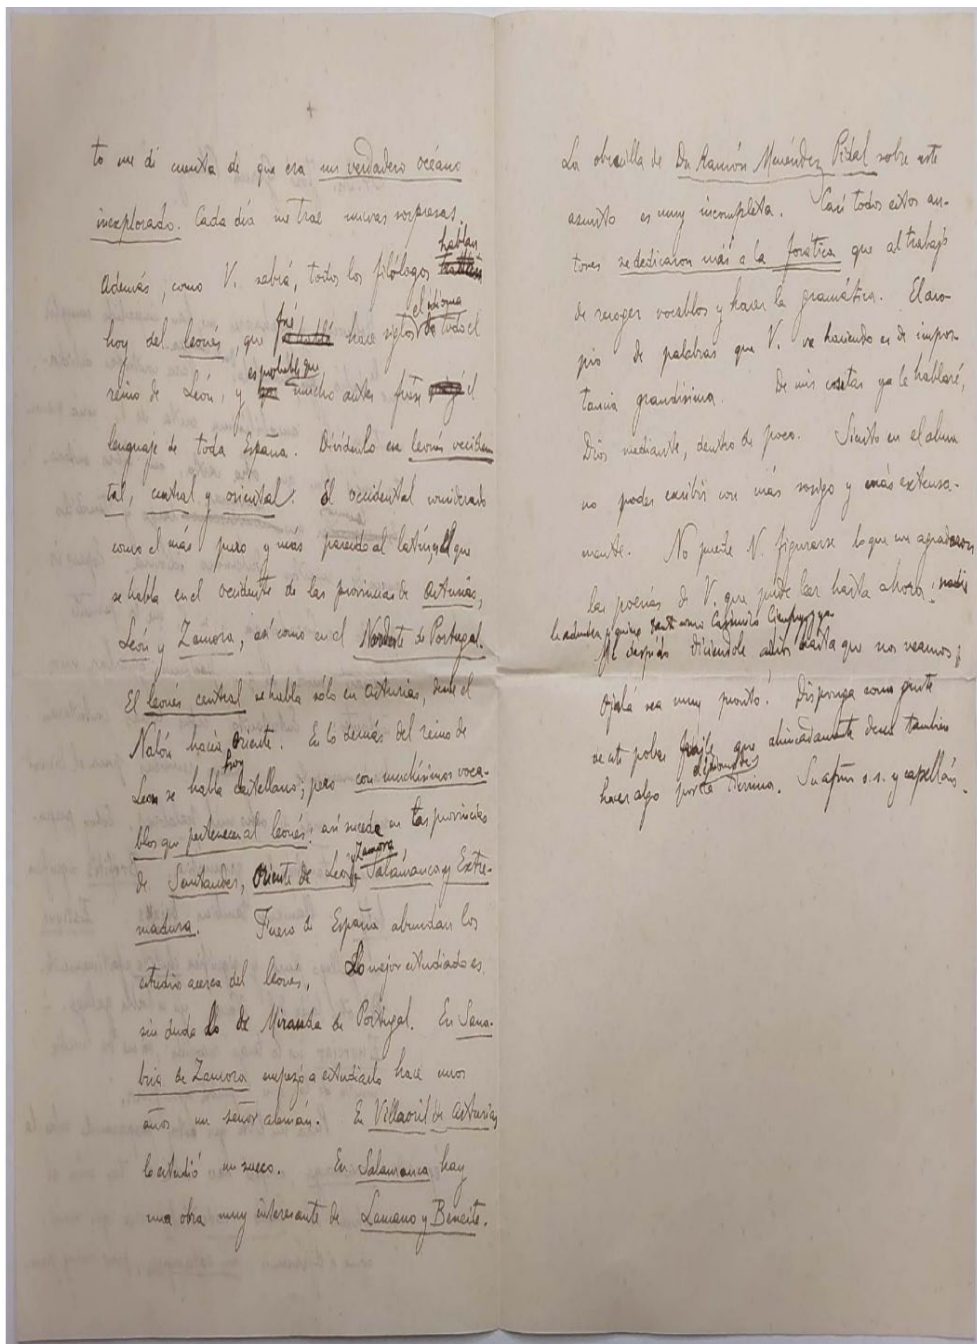 +
to me di cuenta de que era un verdadero océano
inexplorado. Cada día me trae nuevas sorpresas.
Además, como V. sabrá, todos los filólogos hablan
hoy del leonés, que fué hace siglos el idioma de todo el
reino de León, y es probable que mucho antes fuese el
lenguaje de toda España. Divídenlo en leonés occiden
tal, central y oriental. El occidental considerado
como el más puro y más parecido al latín, es el que
se habla en el occidente de las provincias de Asturias,
León y Zamora, así como en el Nordeste de Portugal.
El leonés central se habla sólo en Asturias, desde el
Nalón hacia Oriente. En lo demás del reino de
León se habla hoy castellano; pero con muchísimos voca-
blos que pertenecen al leonés; así sucede en las provincias
de Santander, Oriente de León, Zamora Salamanca y Extre-
madura. Fuera de España abundan los
estudios acerca del leonés, Lo mejor estudiado es
sin duda lo de Miranda de Portugal. En Sana-
bria de Zamora empezó a estudiarlo hace unos
años un señor alemán. En Villaoril de Asturias
lo estudió un sueco. En Salamanca hay
una obra muy interesante de Lamano y Beneite.
La obrecilla de Dn Ramón Menéndez Pidal sobre este
asunto es muy incompleta. Casi todos estos au-
tores se dedicaron más a la fonética que al trabajo
de recoger vocablos y hacer la gramática. El aco-
pio de palabras que V. va haciendo es de impor
tancia grandísima. De mis cositas ya le hablaré,
Dios mediante, dentro de poco. Siento en el alma
no poder escribir con más sosiego y más extensa-
mente. No puede V. figurarse lo que me agradaron
las poesías de V. que pude leer hasta ahora; nadie
le admira y quiere tanto como Casimiro Cienfuegos ya
Me despido diciéndole adiós hasta que nos veamos;
Ojalá sea muy pronto! Disponga como guste
de este pobre fraile que ahincadamente desea también
hacer algo por la Tierrina. Su afmo s.s. y capellán.